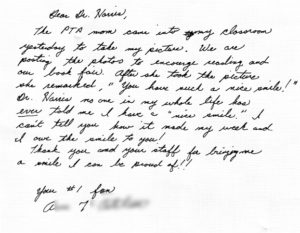 Dear Dr. Harris,
The PTA mom came into my classroom
yesterday to take my picture. We are
posting the photos to encourage reading and
our book fair. After she took the picture
she remarked, "You have such a nice smile!"
Dr. Harris no one in my whole life has
ever told me I have a "nice smile." I
can't tell you how it made my week and
I owe the smile to you.
Thank you and your staff for bringing me
a smile I can be proud of!!
your #1 fan